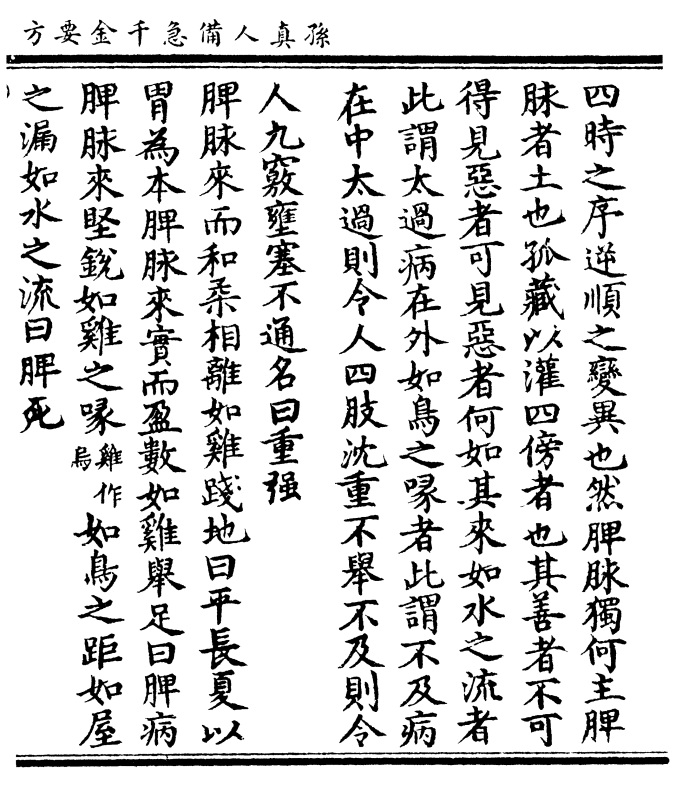 孫真人備急千金要方
四時之序逆順之變異也然脾脉獨何主脾
脉者土也孤藏以灌四傍者也其善者不可
得見惡者可見惡者何如其來如水之流者
此謂太過病在外如鳥之喙者此謂不及病
在中太過則令人四肢沈重不舉不及則令
人九竅壅塞不通名曰重强
脾脉來而和柔相離如雞踐地曰平長夏以
胃為本脾脉來實而盈數如雞舉足曰脾病
脾脉來堅銳如雞之喙雞作烏如鳥之距如屋
之漏如水之流曰脾死